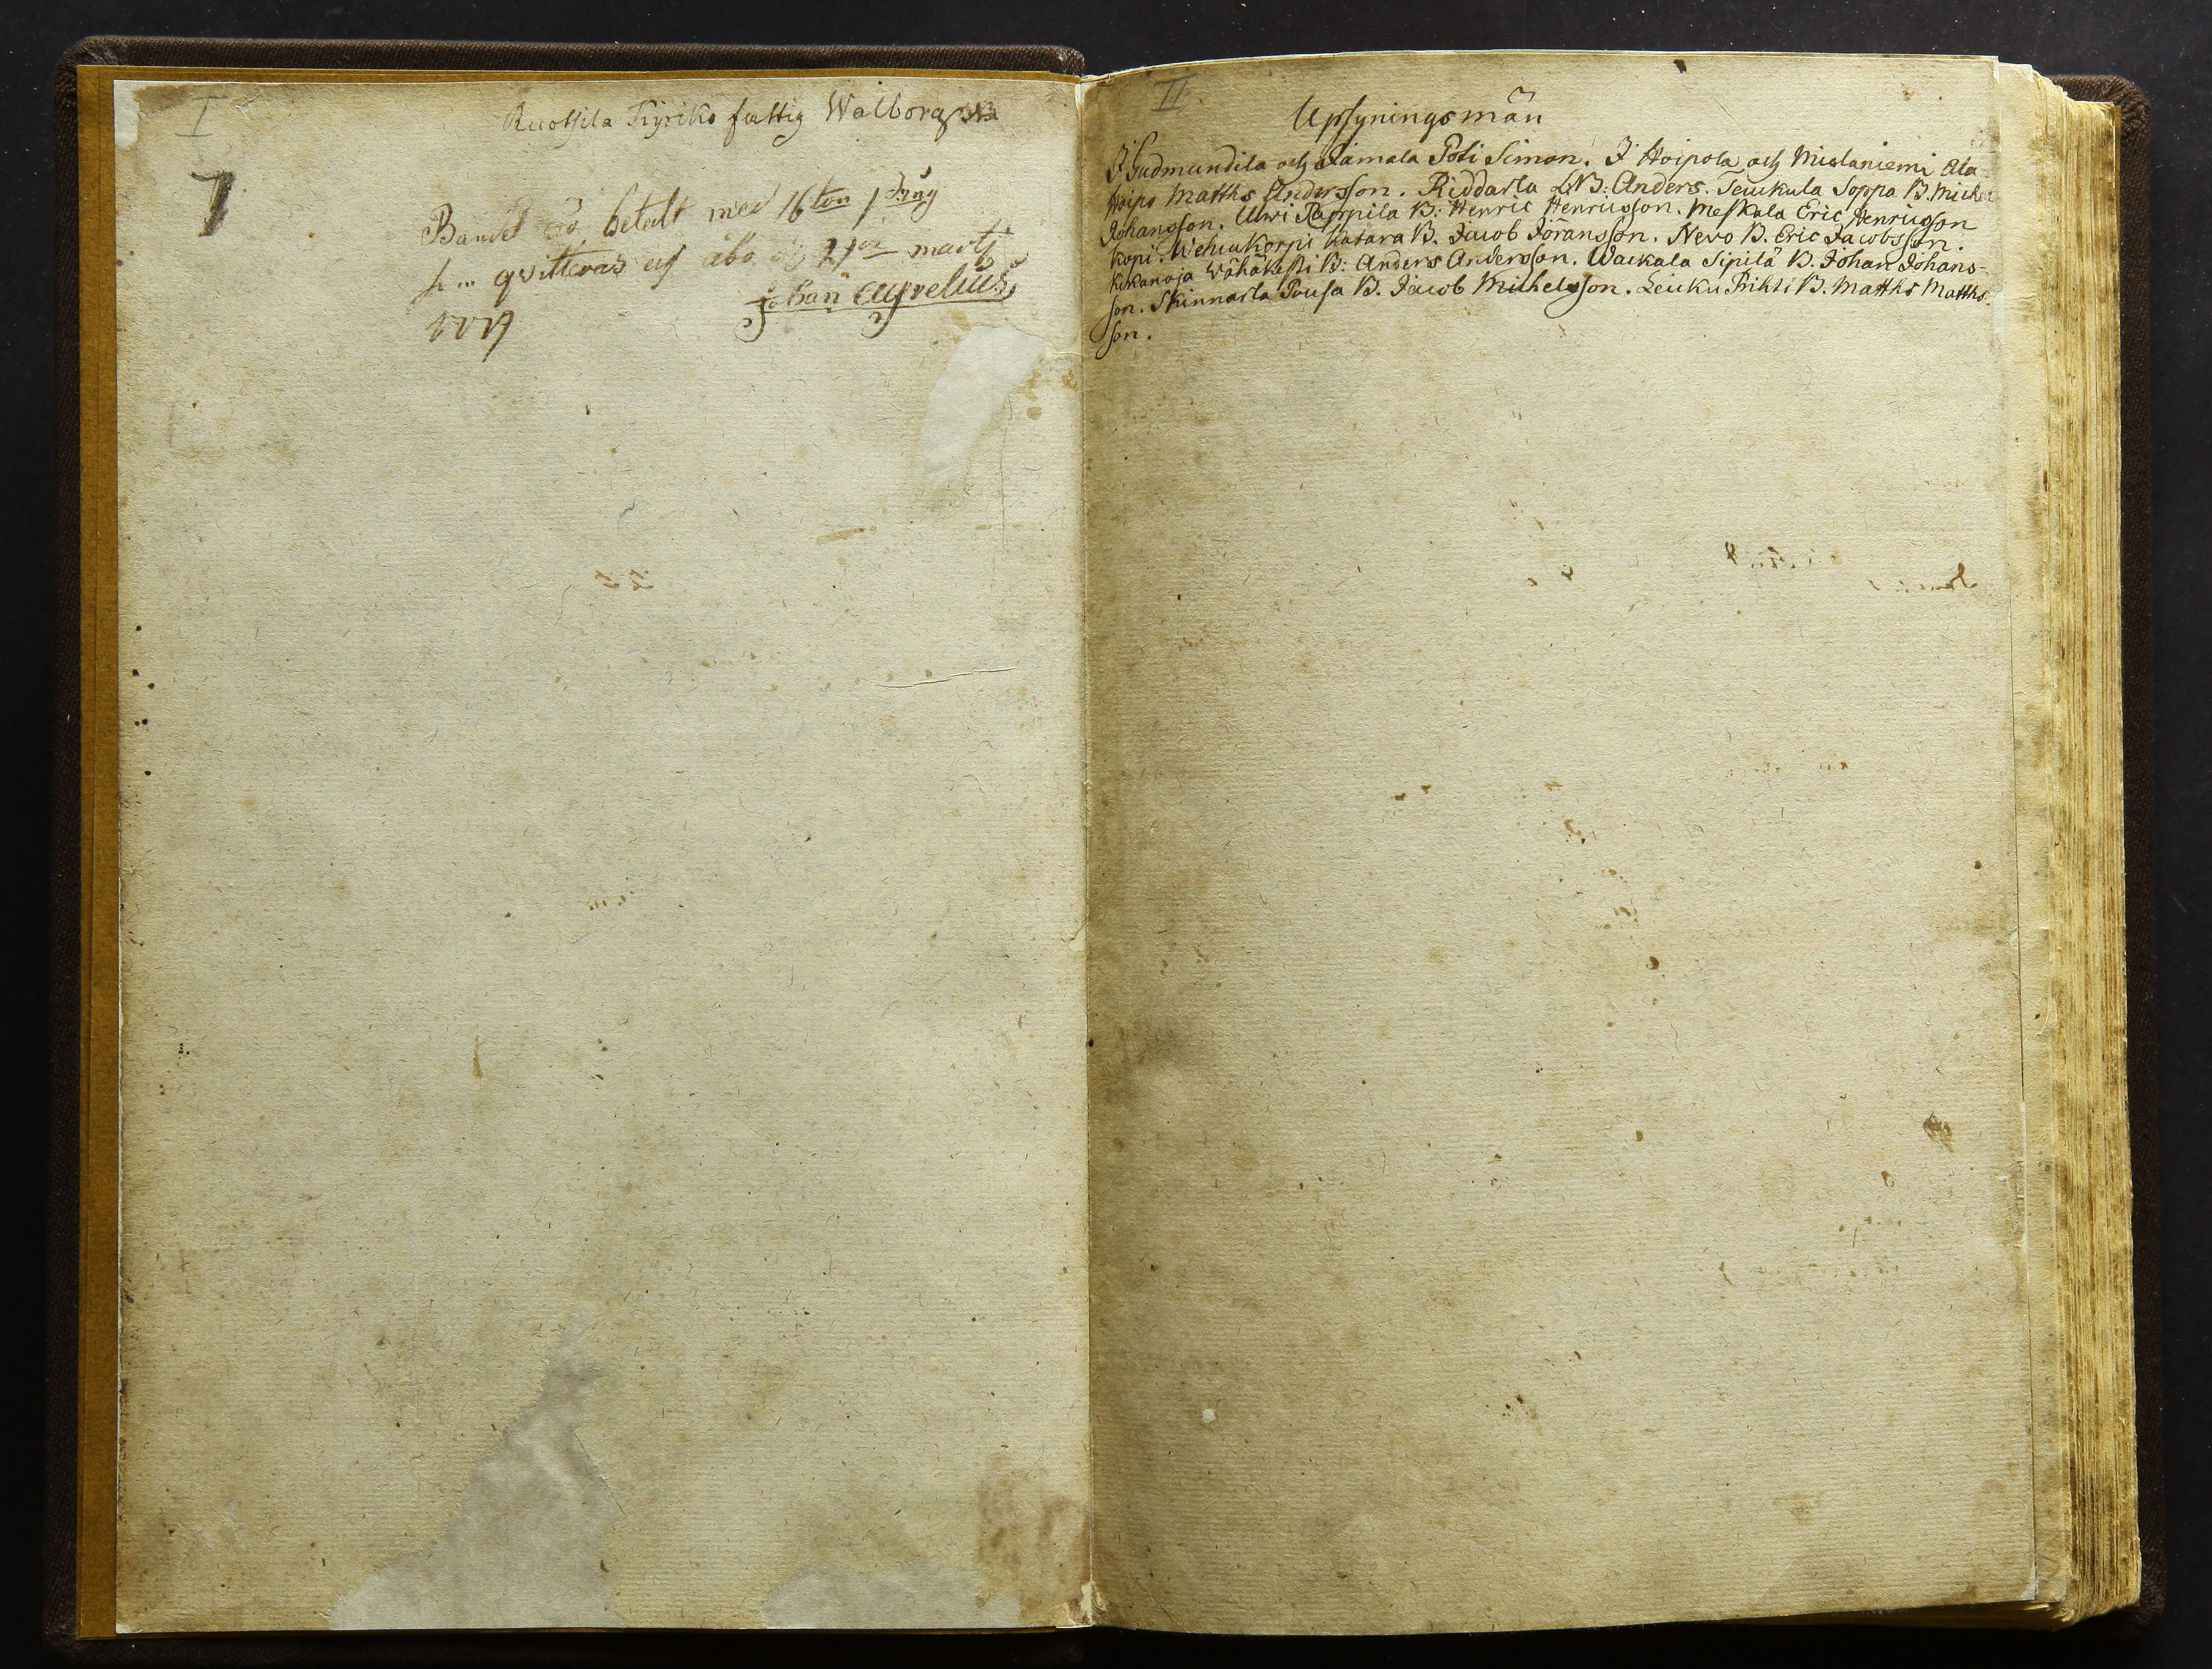 I
7
Ruotsila Kyriko fattig Walborg NB
Bandet betalt med 16 ton 1
qvitteras af åbo 21 martj
Johan Aurelius
II.
Upsyningsmän
I Gudmundila och Lämala Poti Simon. I Hoipola och Mislaniemi Ala-
Hoipo Matths Andersson. Riddarla NB: Anders. Teuckula Soppa B. Michel
Johansson. Ulvi Pappila B: Henric Henricsson. Meskala Eric Henricsson
kopi. Wehickorpi Katara B. Jacob Jöransson. Nevo B. Eric Jacobsson.
Kukanoja Wähäkesti B: Anders Andersson. Waekala Sipilä B. Johan Johans-
son. Skinnarla Pousa B. Jacob Michelsson. Leicku Prihti B. Matths Matths-
son.